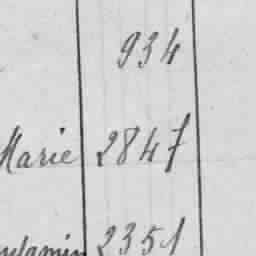 934
Marie 2847
2351